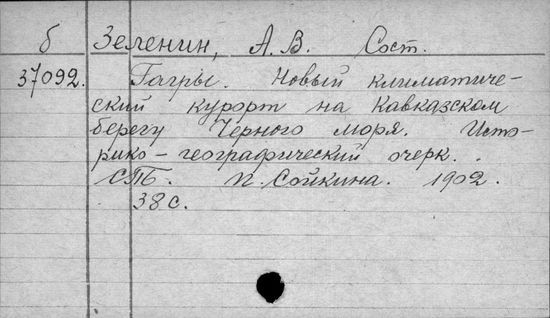 б Зеленин, А. В. Сост.
37092. Гагры. Новый климатиче-
ский курорт на Кавказском
берегу Черного моря. Исто-
рико-географический очерк.
СПБ. П. Сойкина. 1902.
38 с.